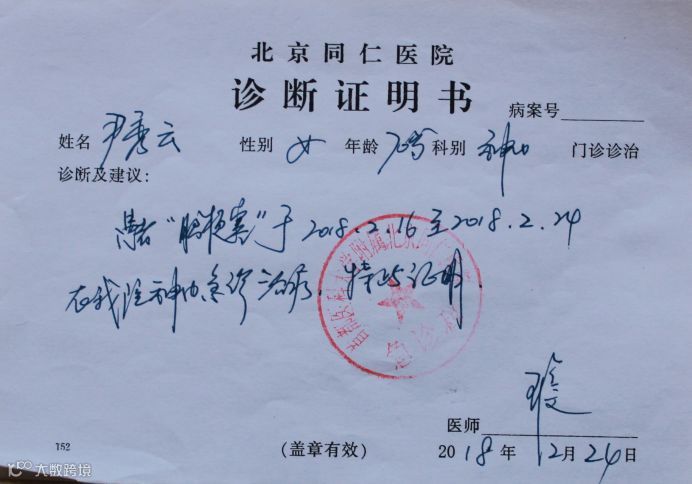 北京同仁医院
诊断证明书
病案号
姓名 尹秀云 性别 女 年龄 科别 神内 门诊诊治
诊断及建议:
患者“脑梗塞”于2018.2.16至2018.2.24
在我院神内急诊治疗.特此证明.
急诊
医师
T52
(盖章有效)
2018年12月24日
大数跨境